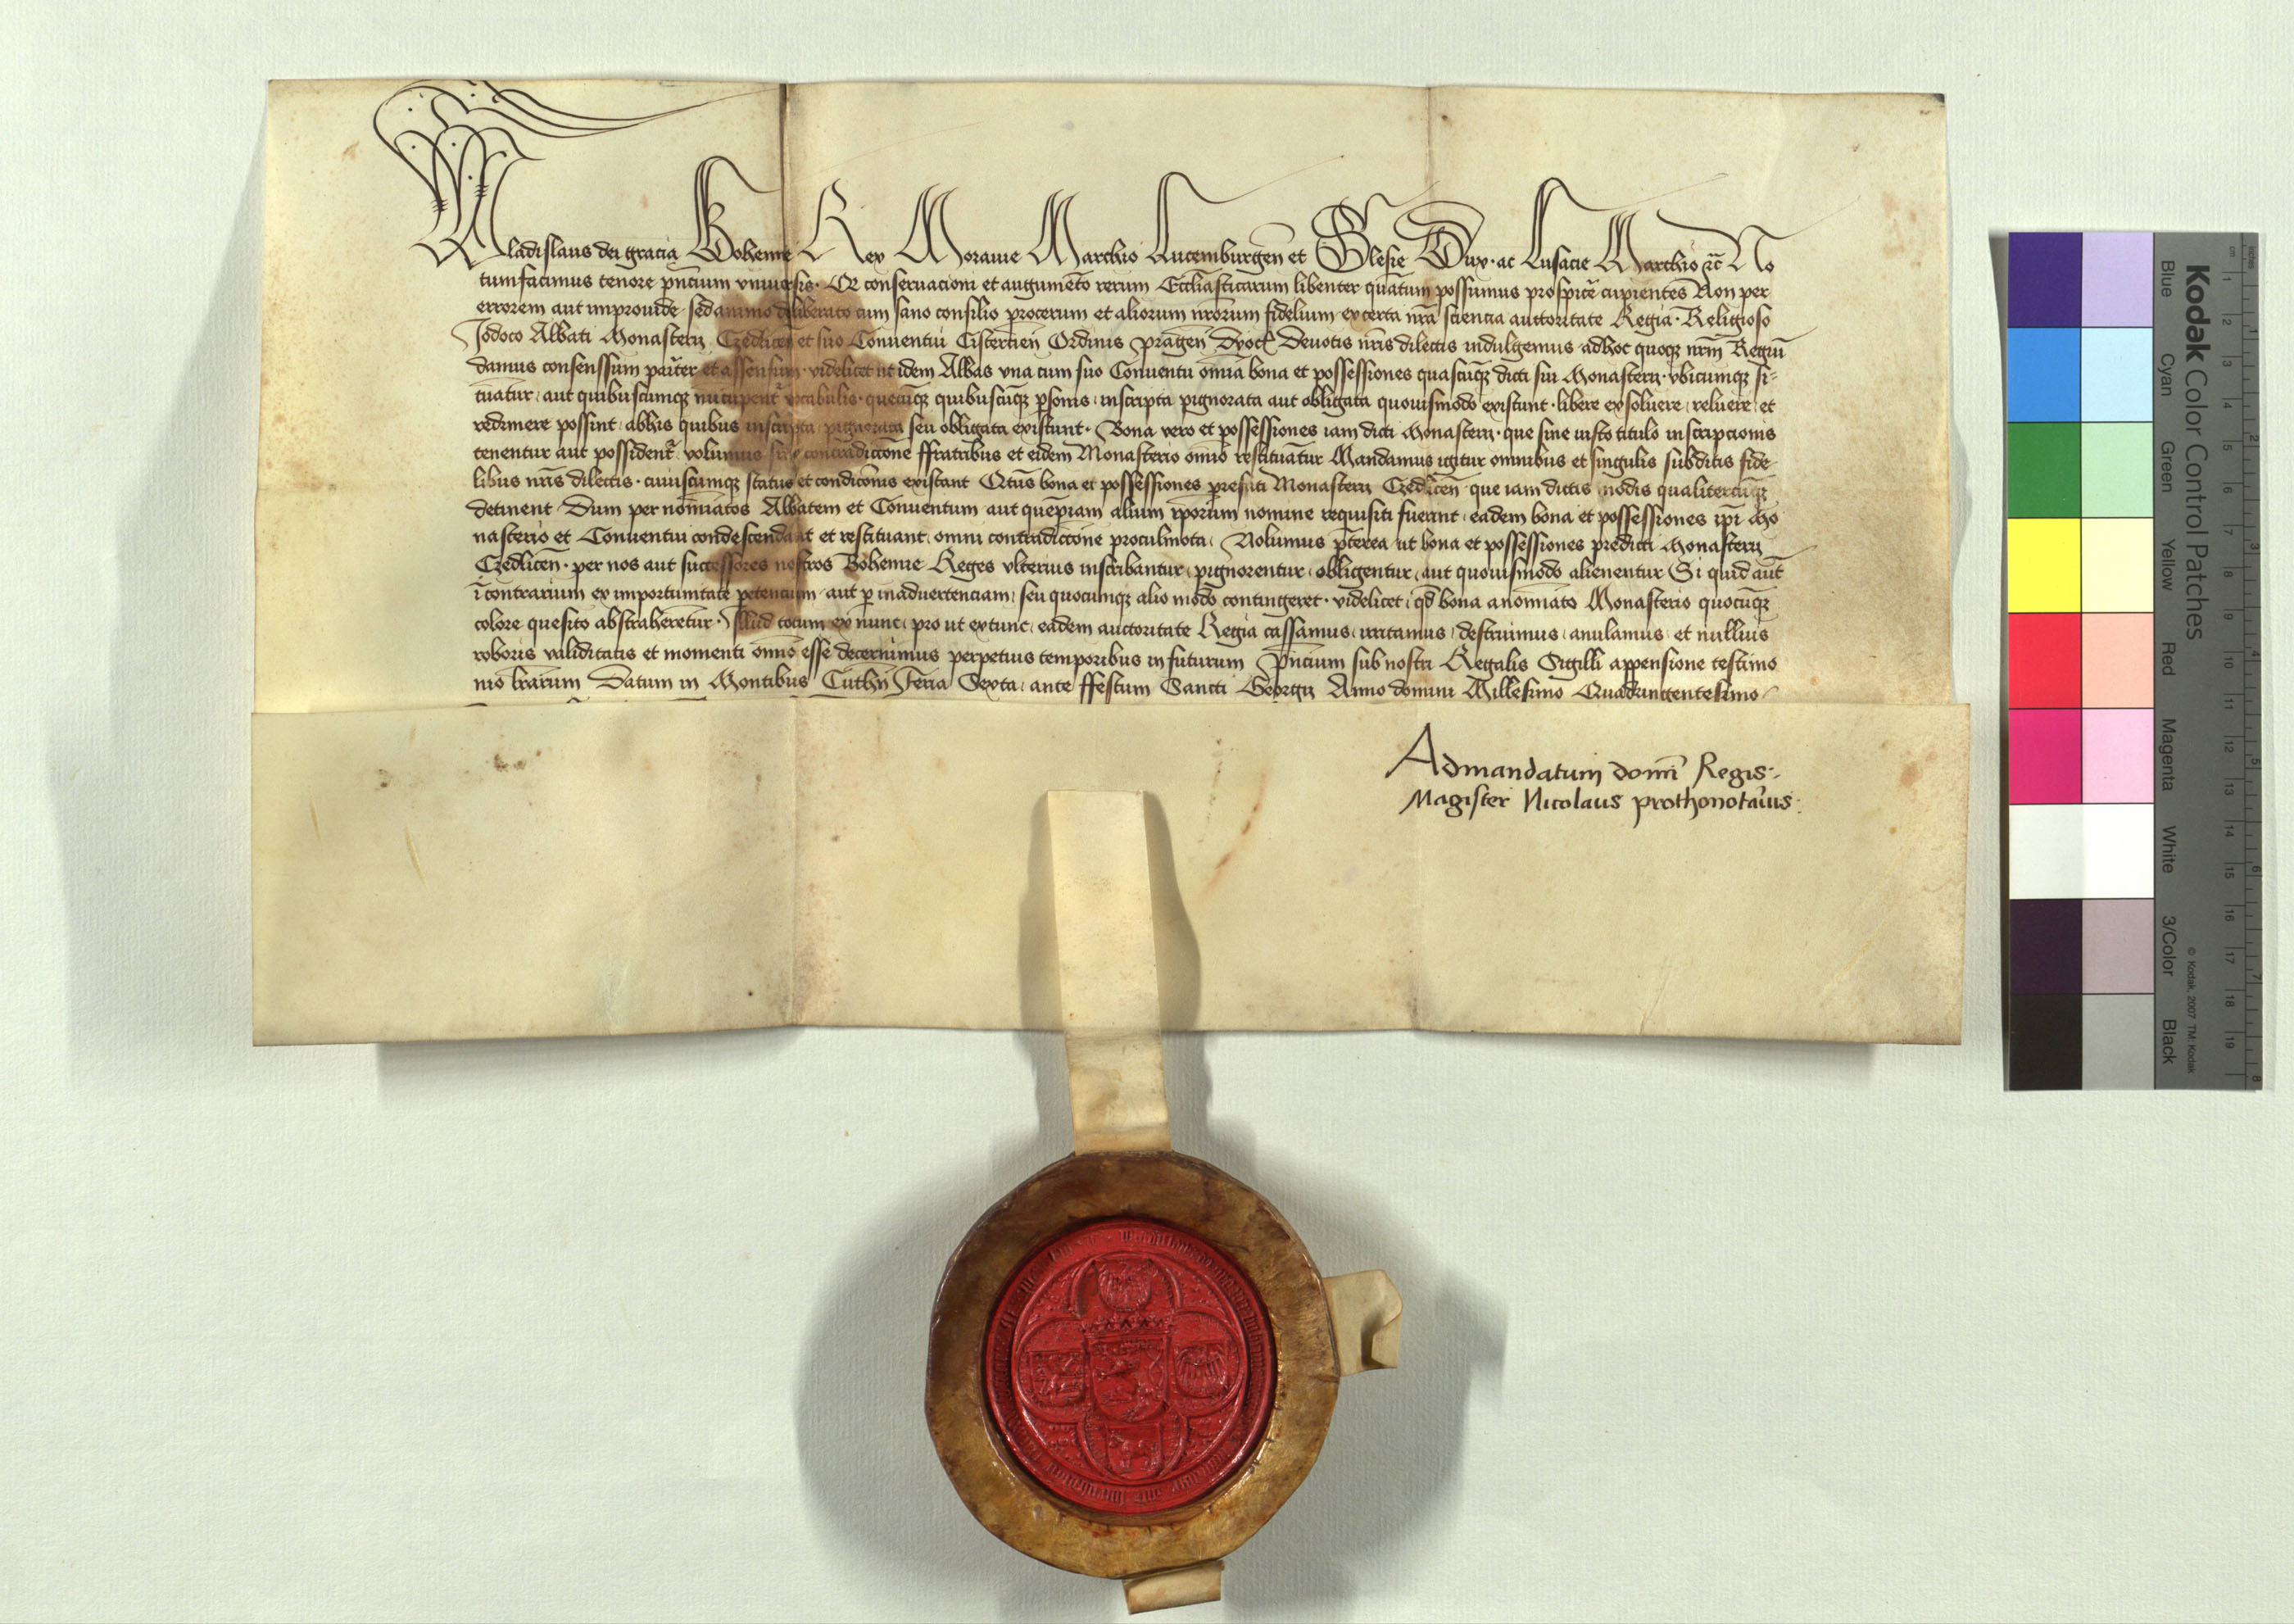 Wladislaus dei gracia Bohemie Rex Moravie Marchio Lucemburgen̄ et Slesie Dux · ac Lusacie Marchio ꝛc̄ No
tumfacimus tenore pn̄cium vniuersis · Qꝛ conseruacioni et augumēto rerum Eccliāsticarum libenter quātum possumus prospicē cupientes Non per
errorem aut improuide · sed animo deliberato cum sano consilio procerum et aliorum nr̄orum fidelium · ex certa nrā sciencia auctoritate Regia · Religioso
Jodoco Abbati Monasterij Czedlicen̄ et suo Conuentui Cistercien̄ Ordinis Pragen̄ Dyoc̄ Deuotis nr̄is dilectis indulgemus · adhoc quoqꝫ nrm̄ Regiū
damus consenssum parit̄er et assensum · videlicet ut idem Abbas vna cum suo Conuentu omīa bona et possessiones quascūqꝫ dicti sui Monasterij · vbicumqꝫ si-
tuātur · aut quibuscumqꝫ nūcupent̄ᷣ vocabulis · quecūqꝫ quibuscūqꝫ ꝑsonis · inscripta pignorata aut obligata quouismodo existunt · libere exsoluere · reluere · et
redimere possint · abhis quibus inscripta · pignorata seu obligata existunt · Bona vero et possessiones iam dicti Monasterij · que sine iusto titulo inscripcionis
tenentur aut possident̄ᷣ · volumus sine contradiccōne ffratribus et eidem Monasterio om̄io restituātur Mandamus igitur omnibus et singulis subditis fide-
libus nr̄is dilectis · cuiuscumqꝫ status et condicōnis existant Qtus bona et possessiones prefati Monasterij Czedlicen̄ · que iam dictis modis qualitercūqꝫ
detinent · Dum per nomīatos Abbatem et Conuentum aut quēpiam alium ip̄orum nomine requisiti fuerint · eadem bona et possessiones ip̄i Mo
nasterio et Conuentui condescendant et restituant · omni contradiccōne proculmota · Nolumus p̄terea ut bona et possessiones predicti Monasterij
Czedlicen̄ · per nos aut successores nostros Bohemie Reges vlterius inscribantur · pignorentur · obligentur · aut quouismodo alienentur Si quid aūt
ī contrarium ex importunitate petencium · aut ꝑ inaduertenciam · seu quocumqꝫ alio modo contingeret · videlicet · qd̄ bona anomīato Monasterio quocūqꝫ
colore quesito abstraherētur · Illud totum ex nunc · pro ut extunc · eadem auctoritate Regia cassamus · irritamus · destruimus · anulamus · et nullius
roboris validitatis et momenti om̄no esse decernimus perpetuis temporibus in futurum Pn̄cium sub nostri Regalis Sigilli appensione testimo
nio lr̄arum Datum in Montibus Cuthn̄ Feria Sexta · ante ffestum Sancti Georgij Anno domini Millesimo Quadringentesimo
Admandatum domī Regis
Magister Nicolaus prothonotārius
Kodak Color Control Patches
Blue Cyan Green Yellow Red Magenta White 3/Color Black
© Kodak, 2007 TM: Kodak
cm 1 2 3 4 5 6 7 8 9 10 11 12 13 14 15 16 17 18 19
inches 1 2 3 4 5 6 7 8